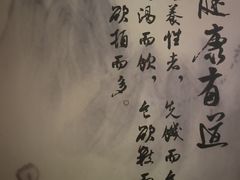 健康有道
養性者，先饑而食
渴而飲，食欲數而
欲頓而多。